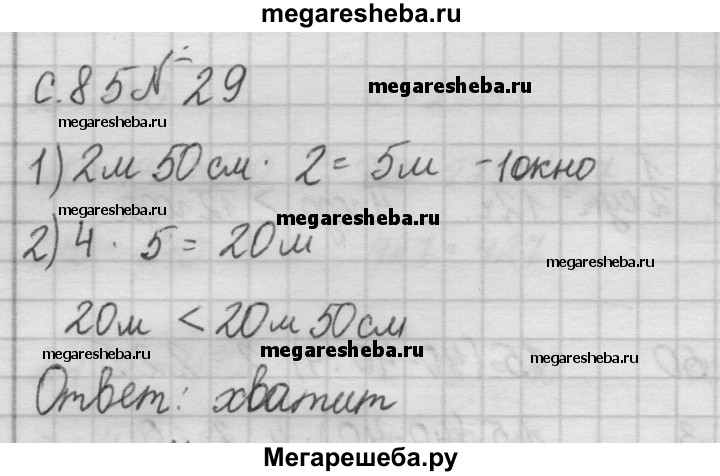 megaresheba.ru
с.85 № 29
megaresheba.ru
megaresheba.ru
1) 2м 50см · 2 = 5м - 1окно
megaresheba.ru
megaresheba.ru
2) 4 · 5 = 20м
megaresheba.ru
20м < 20м 50см
megaresheba.ru
megaresheba.ru
megaresheba.ru
Ответ: хватит
megaresheba.ru
megaresheba.ru
Мегарешеба.ру